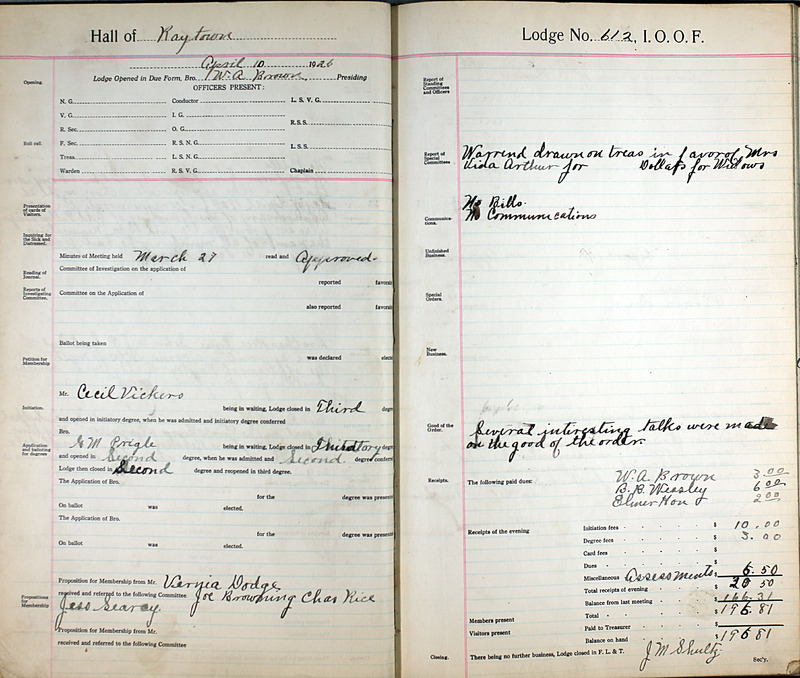 Hall of Raytown
April 10 1926
Lodge Opened in Due Form, Bro. W. A. Brown Presiding
Opening.
OFFICERS PRESENT:
N. G. Conductor L. S. V. G.
V. G. I. G.
R.S.S.
R. Sec. O. G.
Roll call.
F. Sec. R. S. N. G.
L.S.S.
Treas. L. S. N. G.
Warden R. S. V. G. Chaplain
Presentation
of cards of
Visitors.
Inquiring for
the Sick and
Distressed.
Minutes of Meeting held March 27 read and Approved.
Reading of
Journal.
Committee of Investigation on the application of
reported favora
Reports of
Investigating
Committee.
Committee on the Application of
also reported favora
Ballot being taken
was declared elect
Petition for
Membership
Mr. Cecil Vickers
Initiation.
being in waiting, Lodge closed in Third degre
and opened in initiatory degree, when he was admitted and initiatory degree conferred
Bro.
Application
and balloting
for degrees
G M Prigle being in waiting, Lodge closed in degre
and opened in Second degree, when he was admitted and Second degree conferre
Lodge then closed in Second degree and reopened in third degree.
The Application of Bro.
for the degree was presente
On ballot was elected.
The Application of Bro.
for the degree was presente
On ballot was elected.
Proposition for Membership from Mr. Varnia Dodge
Propositions
for
Membership
received and referred to the following Committee Joe Browning Chas Rice
Jess Searcy.
Proposition for Membership from Mr.
received and referred to the following Committee
Lodge No. 612, I. O. O. F.
Report of
Standing
Committees
and Officers
Report of
Special
Committees
Warrend drawn on treas in favor of Mrs
Vida Arthur for Dollars for Widows
No Bills.
Communica-
tions.
No Communications
Unfinished
Business.
Special
Orders.
New
Business.
Good of the
Order.
Several interesting talks were made
on the good of the order.
Receipts.
The following paid dues: W. A. Brown 3.00
B. B. Weasley 6.00
Elmer Hon 2.00
Receipts of the evening
Initiation fees $ 10.00
Degree fees $ 3.00
Card fees $
Dues $
Miscellaneous Assessments $ 6.50
Total receipts of evening $ 20 50
Balance from last meeting $ 166.31
Members present
Total $ 196 81
Visitors present
Paid to Treasurer $
Balance on hand $ 196 81
Closing.
There being no further business, Lodge closed in F. L. & T. J M Shultz Sec'y.